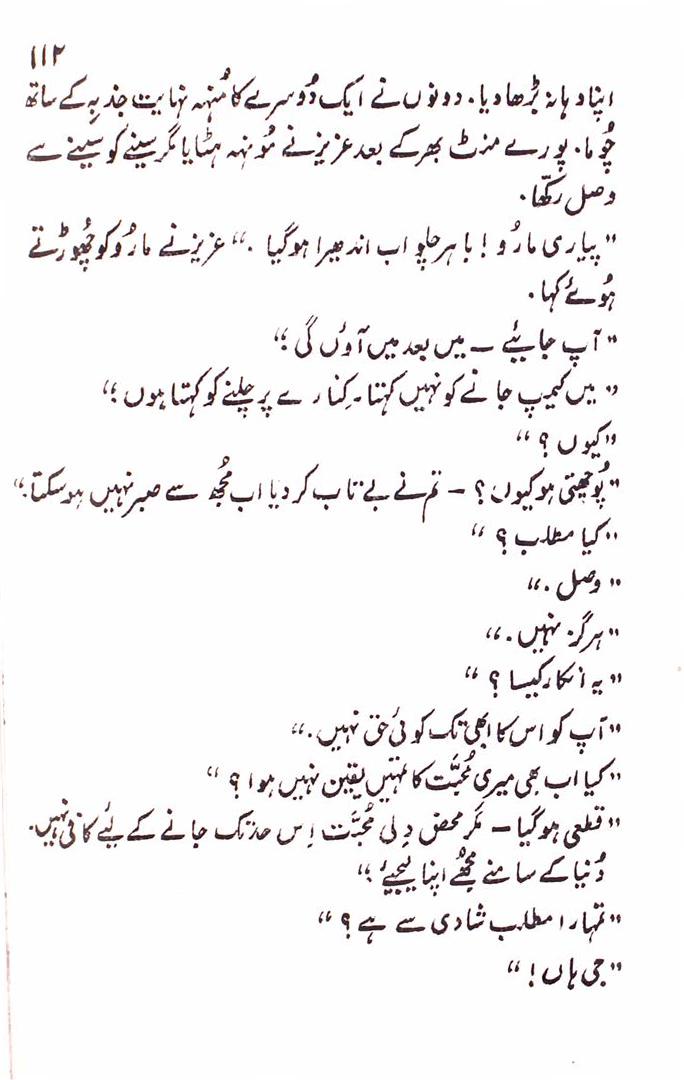 ۱۱۲
اپنا دہانہ بڑھا دیا۔ دونوں نے ایک دُوسرے کا مُنہہ نہایت جذبہ کے ساتھ
چُوما۔ پورے منٹ بھر کے بعد عزیز نے مُونہہ ہٹایا مگر سینے کو سینے سے
وصل رکھّا۔
" پیاری مارُو ! باہر چلو اب اندھیرا ہوگیا ۔" عزیز نے مارُو کو چھُوڑتے
ہُوئے کہا۔
" آپ جائیے ــ میں بعد میں آوُں گی ؛"
" میں کیمپ جانے کو نہیں کہتا۔ کِنارے پر چلنے کو کہتا ہوں ؛"
"کیوں ؟ "
"پُوچھتی ہو کیوں ؟ ــ تم نے بے تاب کر دیا اب مُجھ سے صبر نہیں ہو سکتا۔"
"کیا مطلب ؟ "
" وصل ۔"
" ہرگز نہیں ۔"
" یہ انکار کیسا ؟ "
"آپ کو اس کا ابھی تک کوئی حق نہیں ۔"
"کیا اب بھی میری مُحبَّت کا تمہیں یقین نہیں ہوا ؟ "
" قطعی ہوگیا ــ مگر محض دِلی مُحبَّت اِس حد تک جانے کے لیٔے کافی نہیں۔
دُنیا کے سامنے مجھُے اپنا لیجیٔے ؛"
"تمہارا مطلب شادی سے ہے ؟ "
" جی ہاں ! "